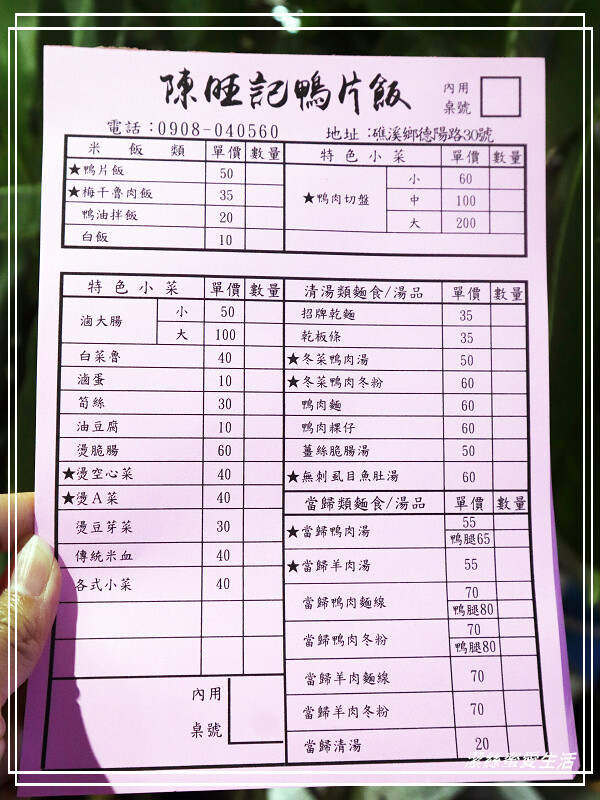 陳旺記鴨片飯
內用
桌號
電話:0908-040560 地址:礁溪鄉德陽路30號
米飯類 單價 數量
★鴨片飯 50
★梅干魯肉飯 35
鴨油拌飯 20
白飯 10
特色小菜 單價 數量
★鴨肉切盤 小 60
中 100
大 200
特色小菜 單價 數量
滷大腸 小 50
大 100
白菜魯 40
滷蛋 10
筍絲 30
油豆腐 10
燙脆腸 60
★燙空心菜 40
★燙A菜 40
燙豆芽菜 30
傳統米血 40
各式小菜 40
內用
桌號
清湯類麵食/湯品 單價 數量
招牌乾麵 35
乾板條 35
★冬菜鴨肉湯 50
★冬菜鴨肉冬粉 60
鴨肉麵 60
鴨肉粿仔 60
薑絲脆腸湯 50
★無刺虱目魚肚湯 60
當歸類麵食/湯品 單價 數量
★當歸鴨肉湯 55
鴨腿65
★當歸羊肉湯 55
當歸鴨肉麵線 70
鴨腿80
當歸鴨肉冬粉 70
鴨腿80
當歸羊肉麵線 70
當歸羊肉冬粉 70
當歸清湯 20
潔絲蜜愛生活